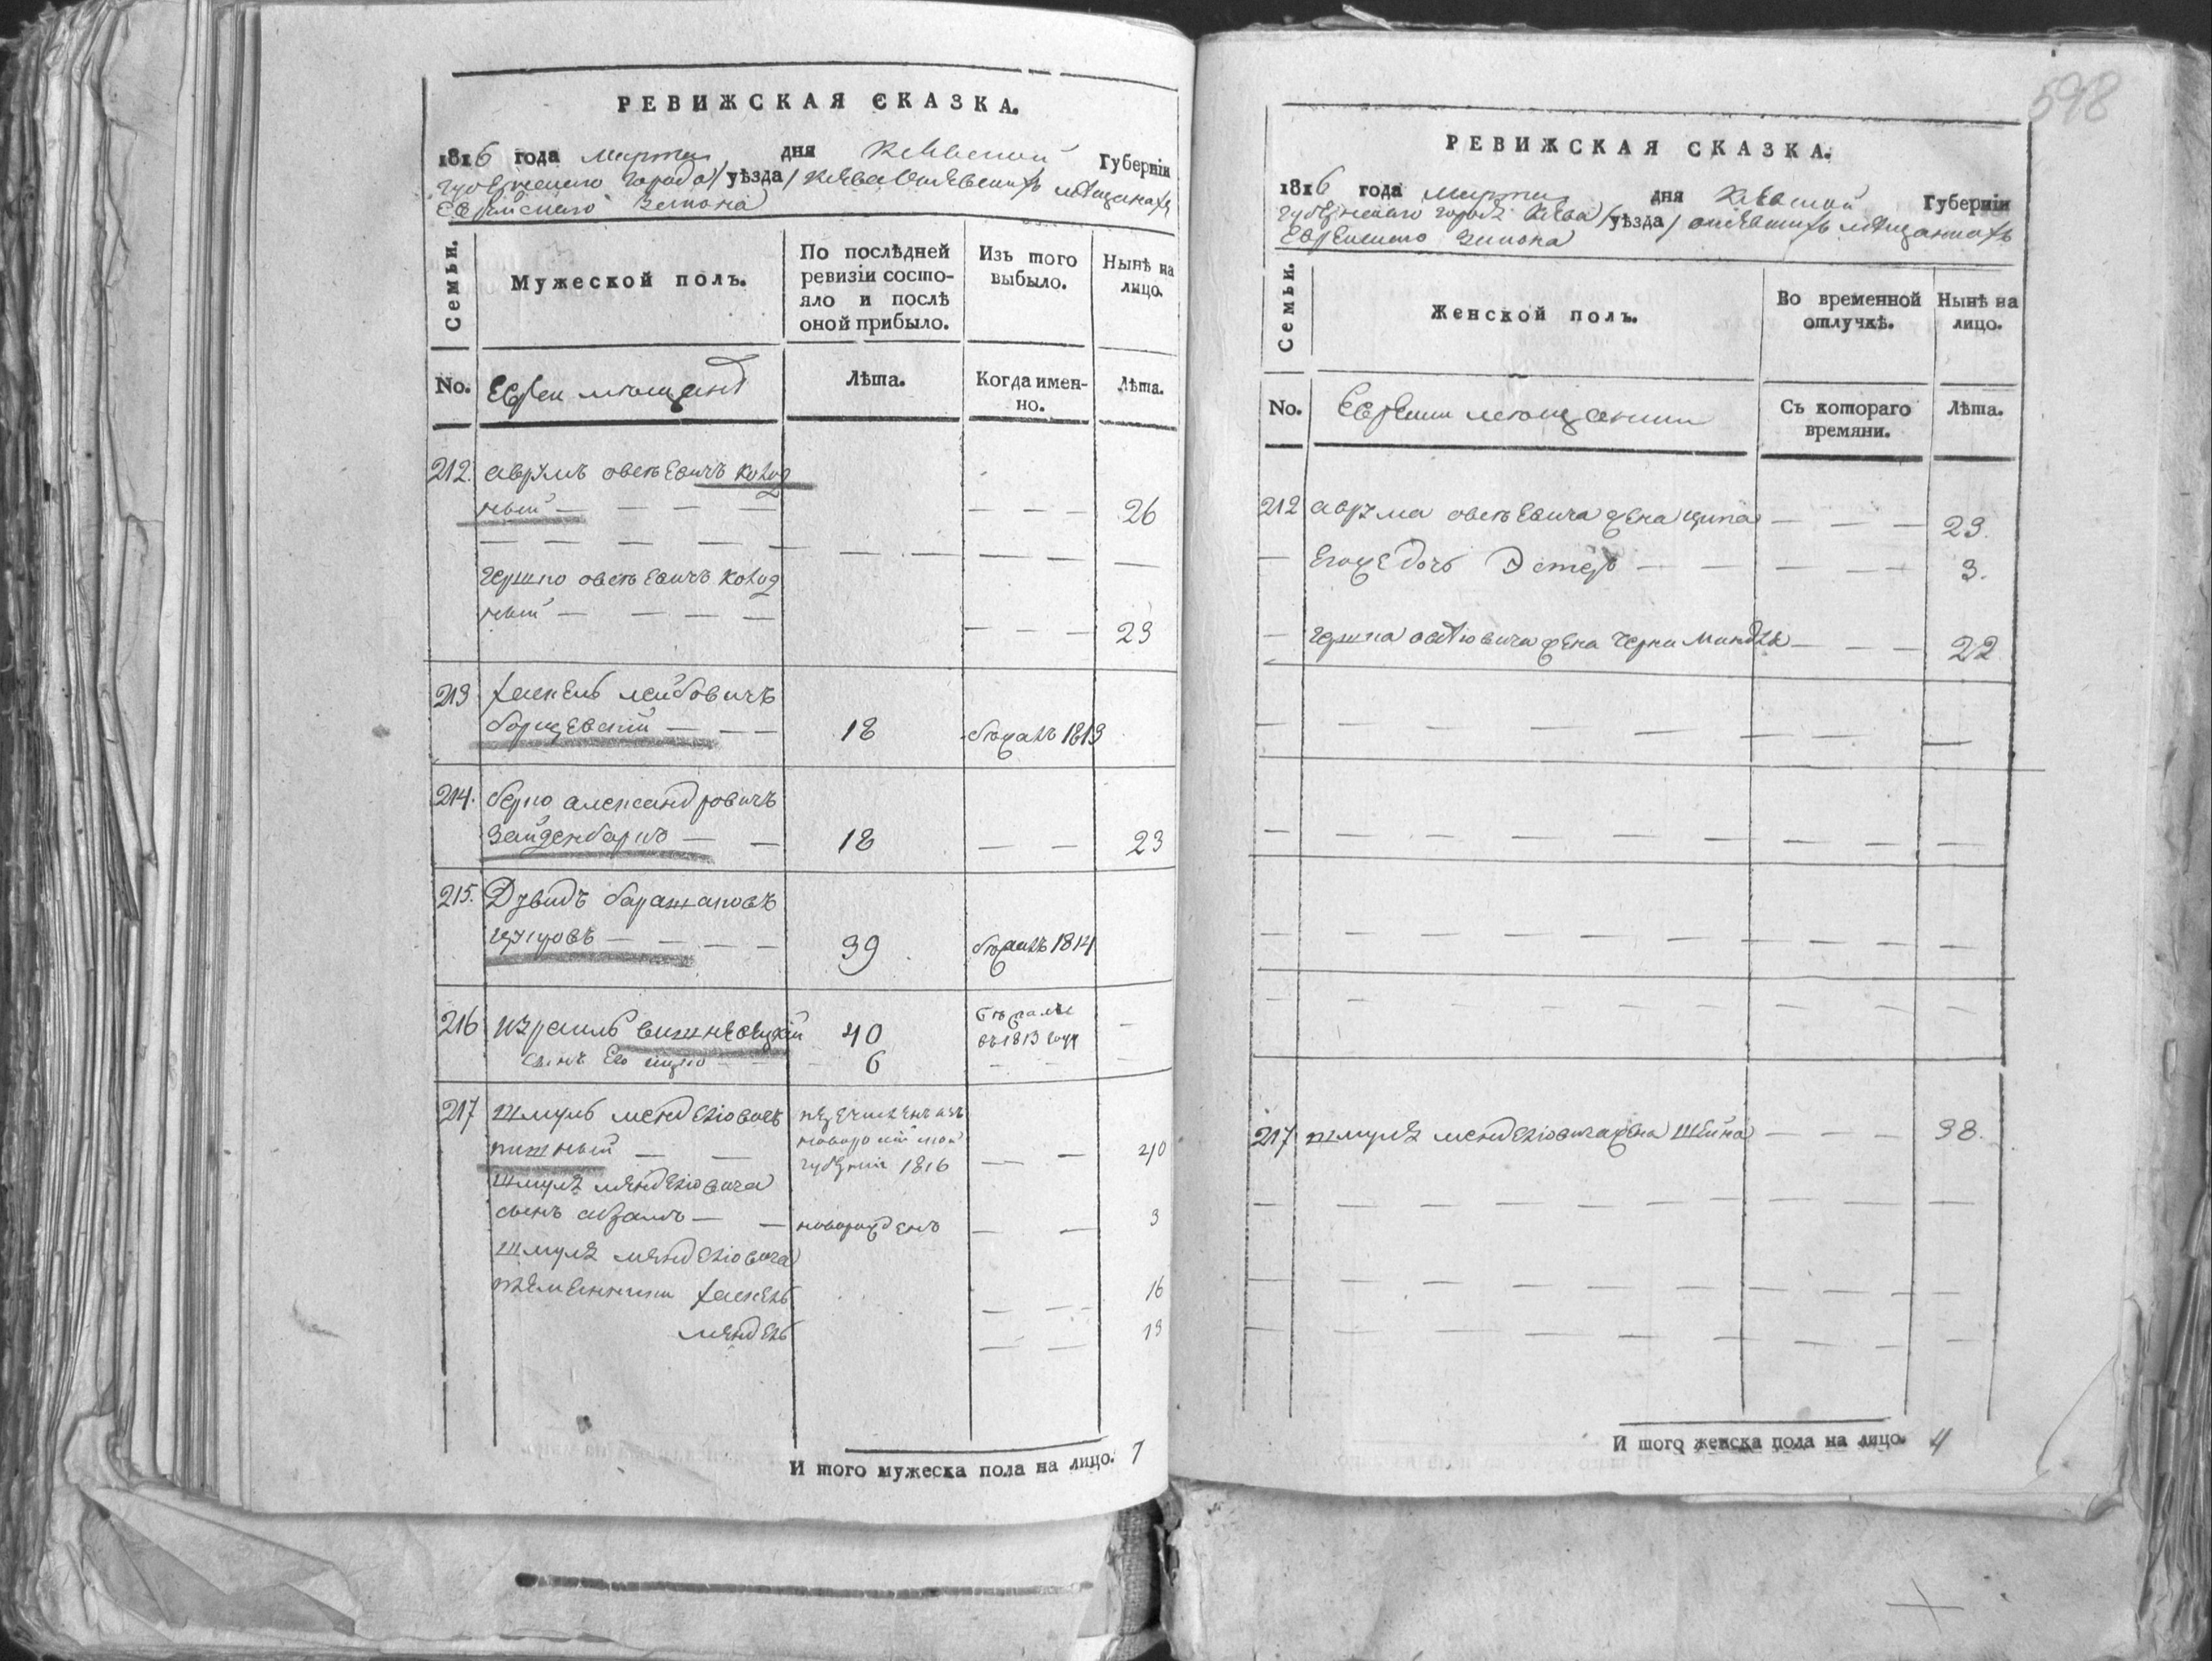 РЕВИЖСКАЯ СКАЗКА.
1816 года марта дня Киевской Губерніи
губернскаго города /уѣзда/ Киева мѣщанахъ
Еврейского закона
Семьи.
Мужеской полъ.
По послѣдней ревизіи состо-
яло и послѣ
оной прибыло.
Изъ того
выбыло.
Нынѣ на
лицо.
No.
Евреи мещане
Лѣта.
Когда имен-
но.
Лѣта.
212. Аврумъ овсѣевичъ колод
ный — — — — — — 26
Гершко овсѣевичъ колод
ный — — — — — — 23
213 Хаскель лейбовичъ
борщевскій — — — 18 бѣжалъ 1813
214. берко александровичъ
Зайденбаргъ — — 18 — — 23
215. Дувидъ
39 бѣжалъ 1814
216 израиль вишневецкій 40 бѣжалъ
въ 1813 году —
сынъ Его 6 — — —
217 Шмуль менделіовичъ
губерніи 1816 — — 40
Шмуля менделіовича
сынъ абрамъ — — новорожденъ — — 3
Шмуля менделіовича
племенники хаскель — — 16
мендель — — 13
И того мужеска пола на лицо. 7
598
РЕВИЖСКАЯ СКАЗКА.
1816 года марта дня Киевской Губерніи
губернскаго города Киева /уѣзда/ мѣщанахъ
Еврейского закона
Семьи.
Женской полъ.
Во временной
отлучкѣ.
Нынѣ на
лицо.
No.
Еврейки мещанки
Съ котораго
времяни.
Лѣта.
212 Аврума овсѣевича жена ципа — — — 23.
— Егоже дочь Эстеръ — — — — — 3.
— Гершка овсѣовича жена Черна — — — 22
217 шмуля менделіовича жена Шейна — — — 38.
И того женска пола на лицо. 4